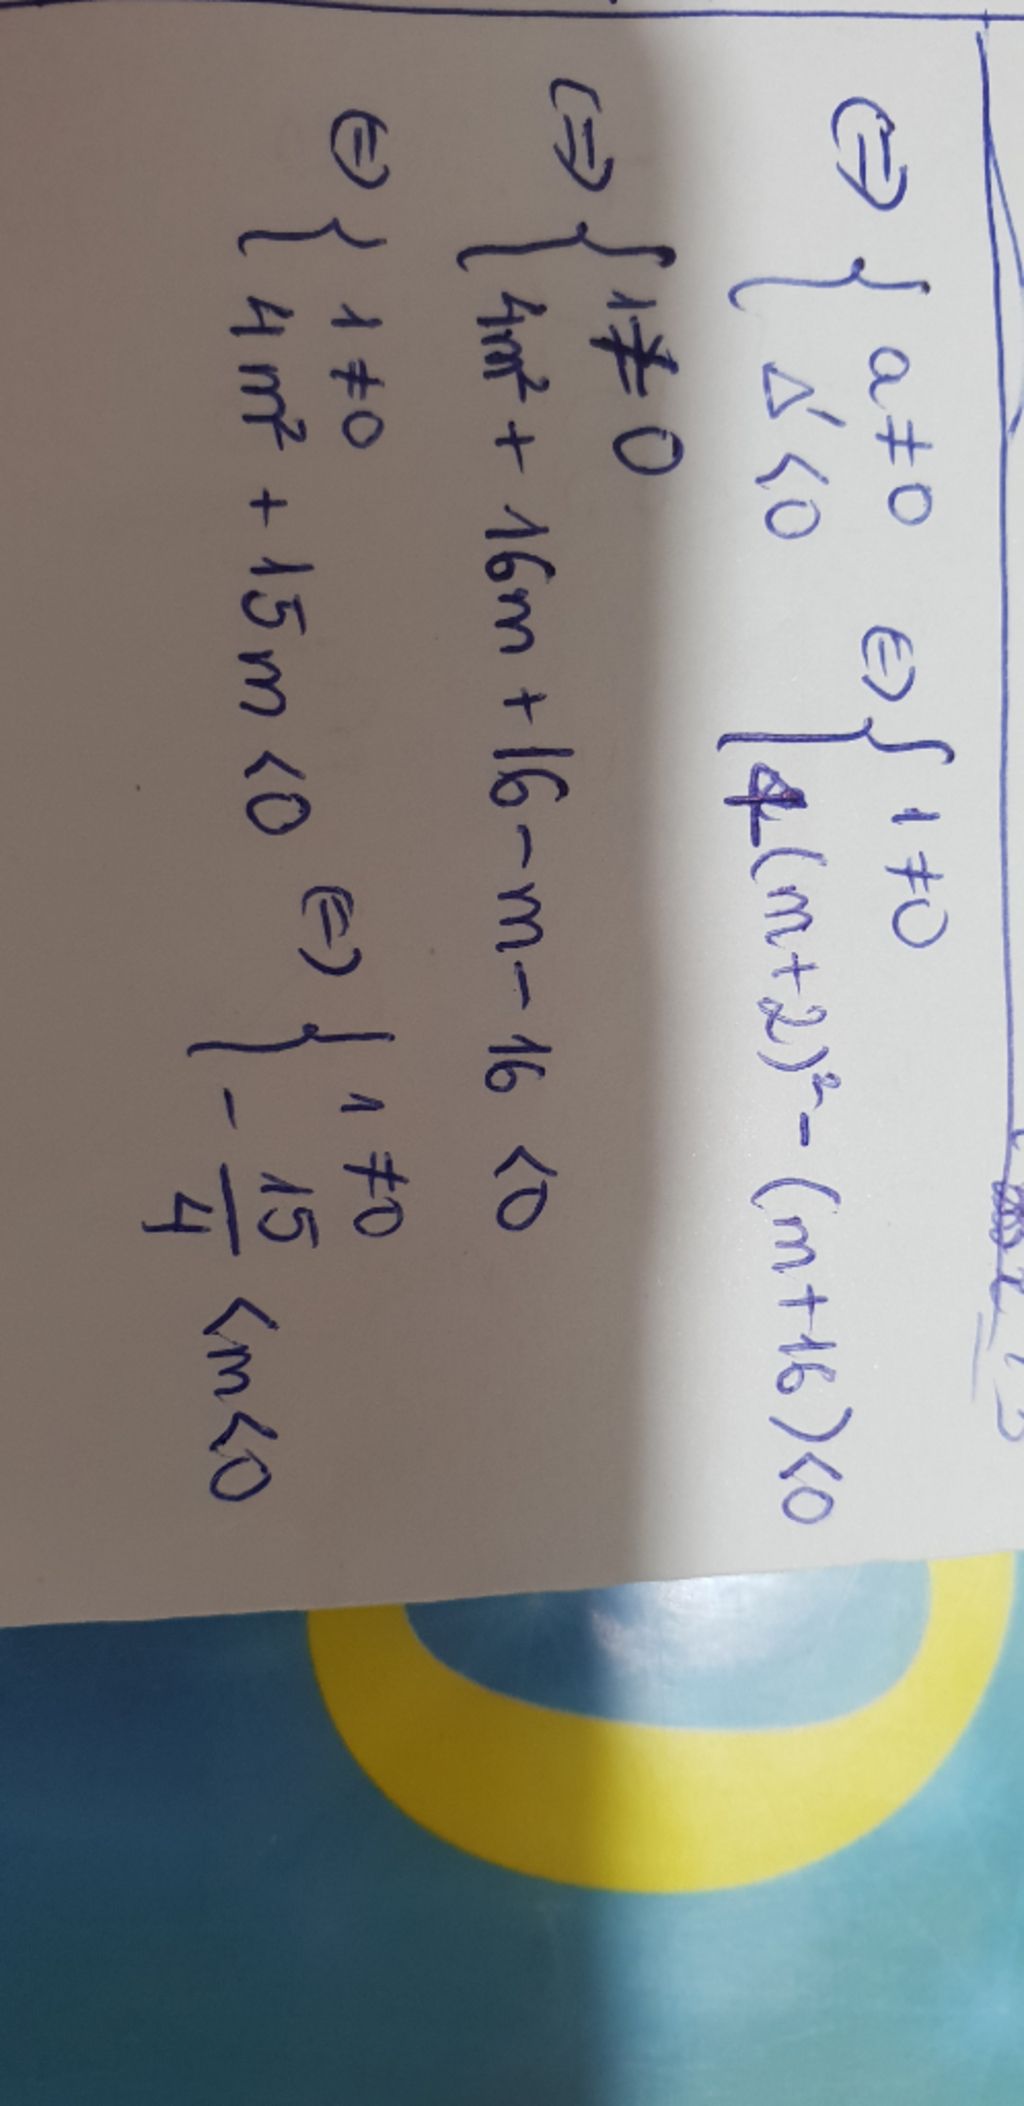 ⇔ { a ≠ 0 ⇔ { 1 ≠ 0
Δ' < 0 4(m+2)² - (m+16) < 0
⇔ { 1 ≠ 0
4m² + 16m + 16 - m - 16 < 0
⇔ { 1 ≠ 0 ⇔ { 1 ≠ 0
4m² + 15m < 0 - 15/4 < m < 0